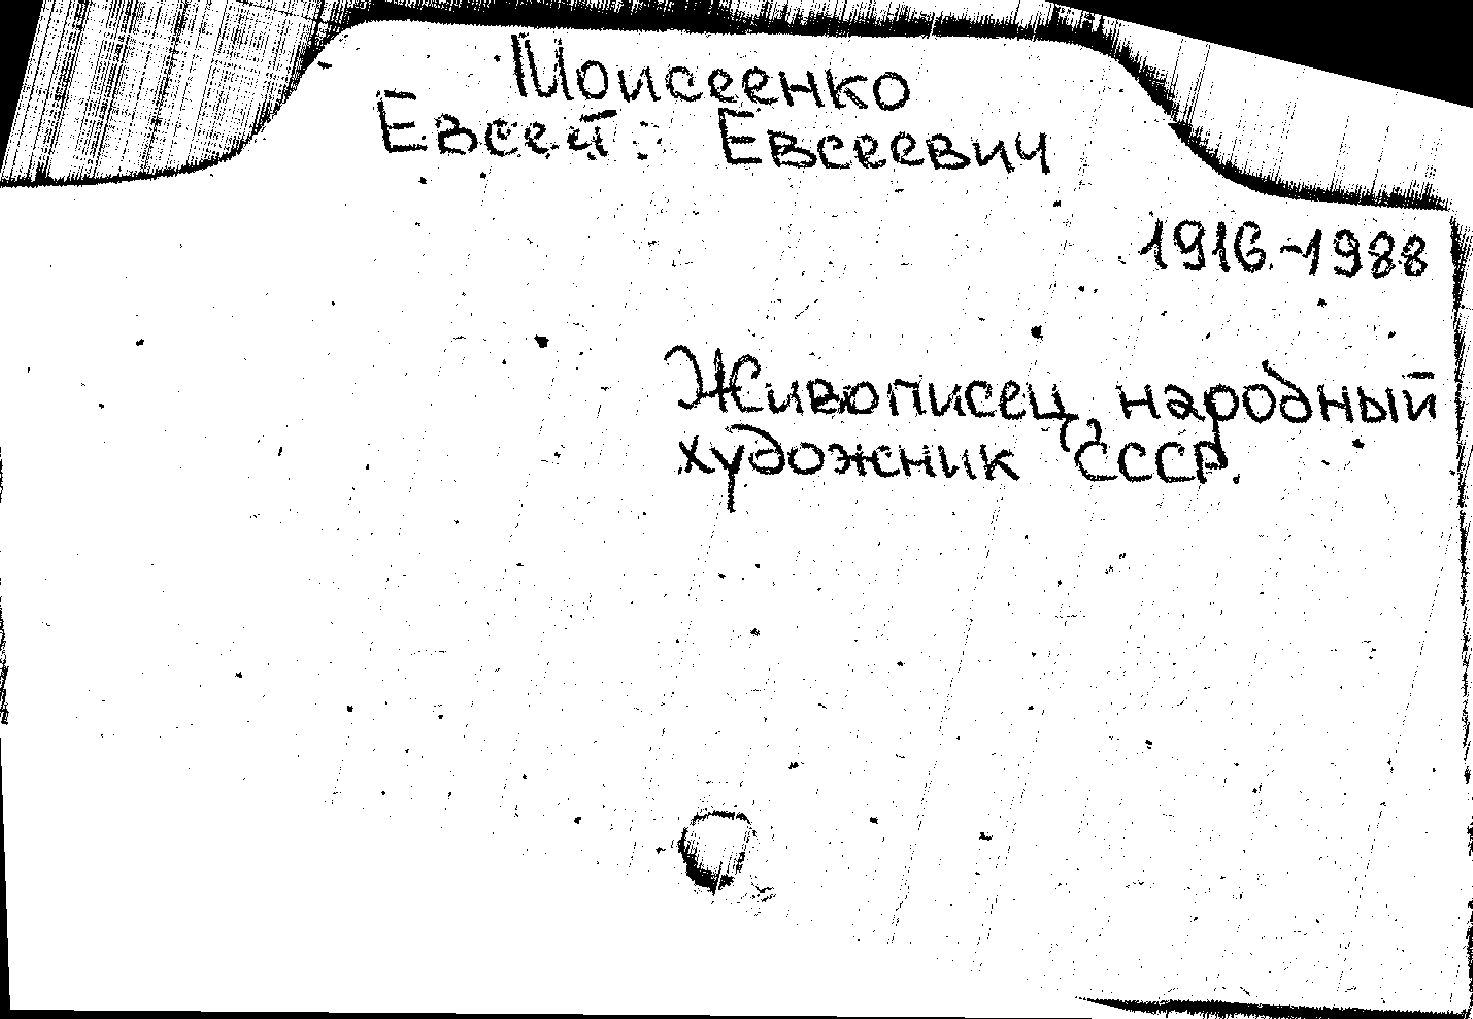 Моисеенко
Евсей Евсеевич
1916-1988
Живописец, народный
художник СССР.